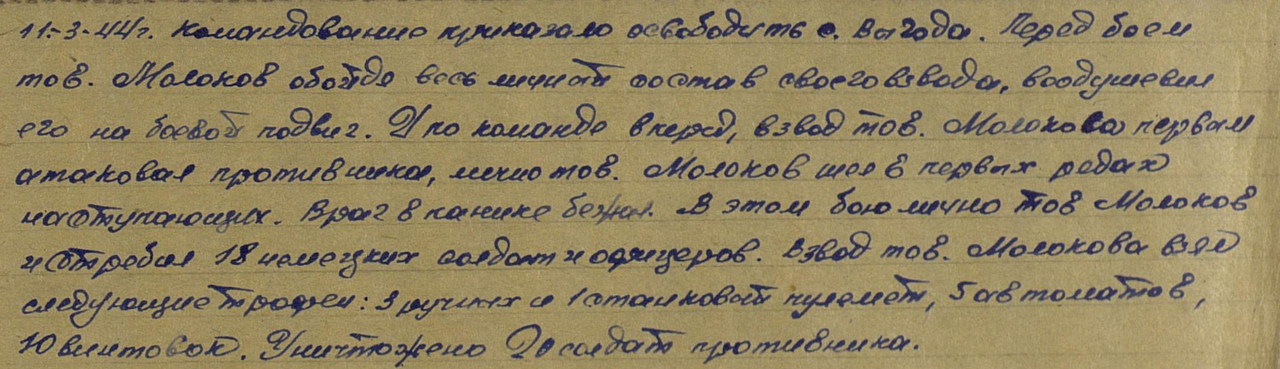 11-3-44г. Командование приказало освободить с. Выгода. Перед боем
тов. Молоков обойдя весь личный состав своего взвода, воодушевил
его на боевой подвиг. И по команде вперед, взвод тов. Молокова первым
атаковал противника, лично тов. Молоков шел в первых рядах
наступающих. Враг в панике бежал. В этом бою лично тов Молоков
истребил 18 немецких солдат и офицеров. Взвод тов. Молокова взял
следующие трофеи: 3 ручных и 1 станковый пулемет, 5 автоматов,
10 винтовок. Уничтожено 20 солдат противника.